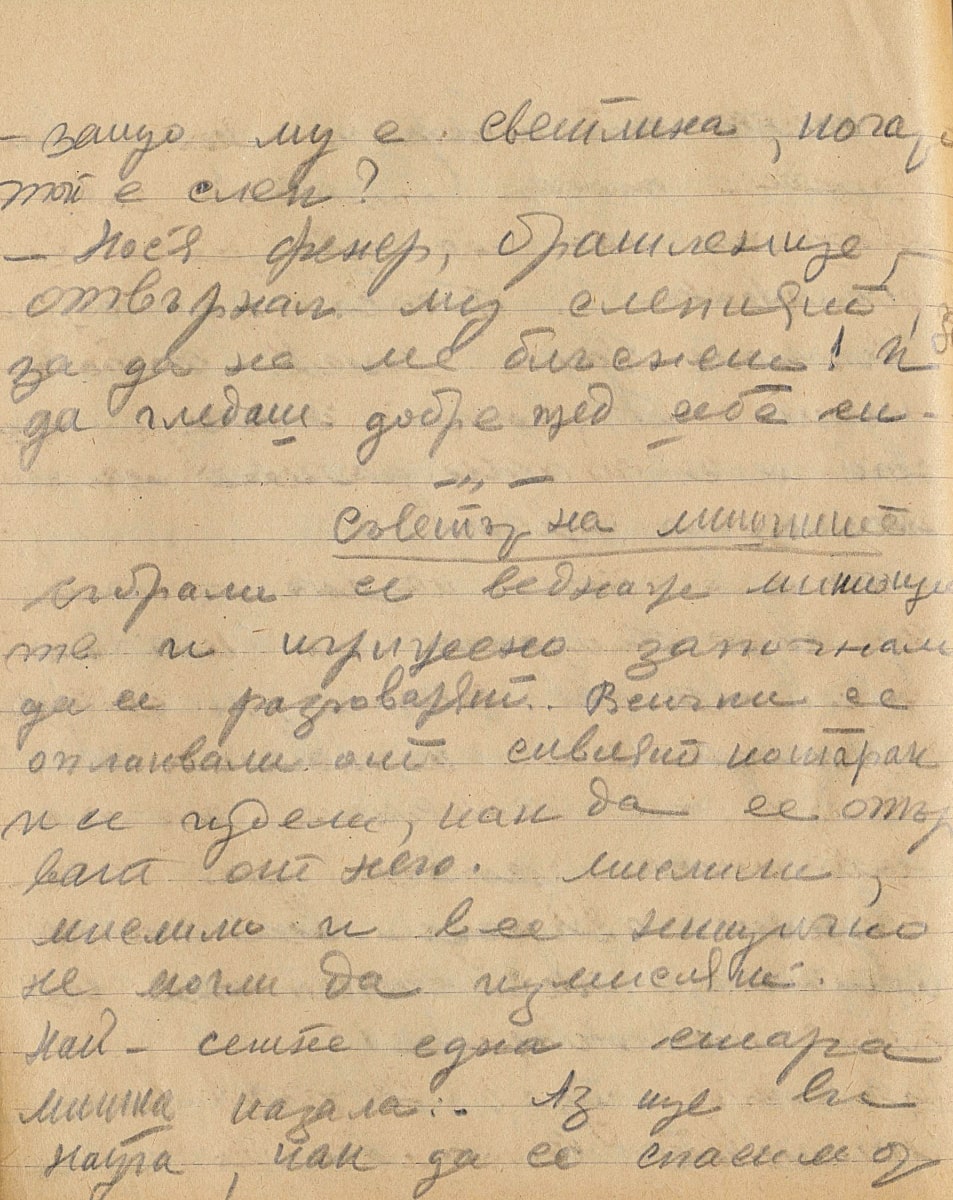 - защо му е светлина, когато
той е слеп?
- Нося фенер, братленце,
отвърнал му слепият,
за да не ме блъснеш! И
да гледаш добре пред себе си.
- „ -
Съветъ на мишките
Събрали се веднаж мишки
те и изкусно започнали
да се разговарят. Всички се
оплаквали от сивият котарак
и се чудели, как да се отър
ват от него. Мислили,
мислили и все нищичко
не могли да измислят.
Най-сетне една стара
мишка казала: Аз ще ви
науча, как да се спасим от